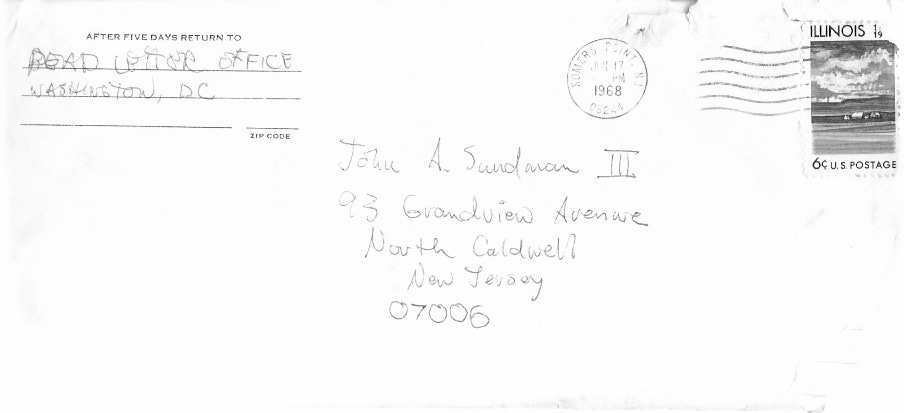 AFTER FIVE DAYS RETURN TO
DEAD LETTER OFFICE
WASHINGTON, DC
ZIP CODE
SOMERS POINT, NJ
JUN 17
PM
1968
08244
ILLINOIS 18
19
6¢ U.S. POSTAGE
John A. Sundman III
93 Grandview Avenue
North Caldwell
New Jersey
07006